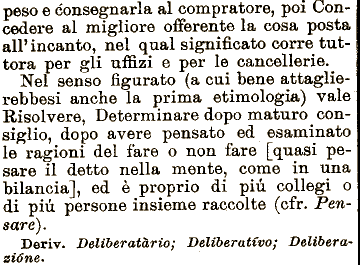 peso e ćonsegnarla al compratore, poi Con-
cedere al migliore offerente la cosa posta
all'incanto, nel qual significato corre tut-
tora per gli uffizi e per le cancellerie.
Nel senso figurato (a cui bene attaglie-
rebbesi anche la prima etimologia) vale
Risolvere, Determinare dopo maturo con-
siglio, dopo avere pensato ed esaminato
le ragioni del fare o non fare [quasi pe-
sare il detto nella mente, come in una
bilancia], ed è proprio di piú collegi o
di piú persone insieme raccolte (cfr. Pen-
sare).
Deriv. Deliberatàrio; Deliberatívo; Delibera-
zióne.